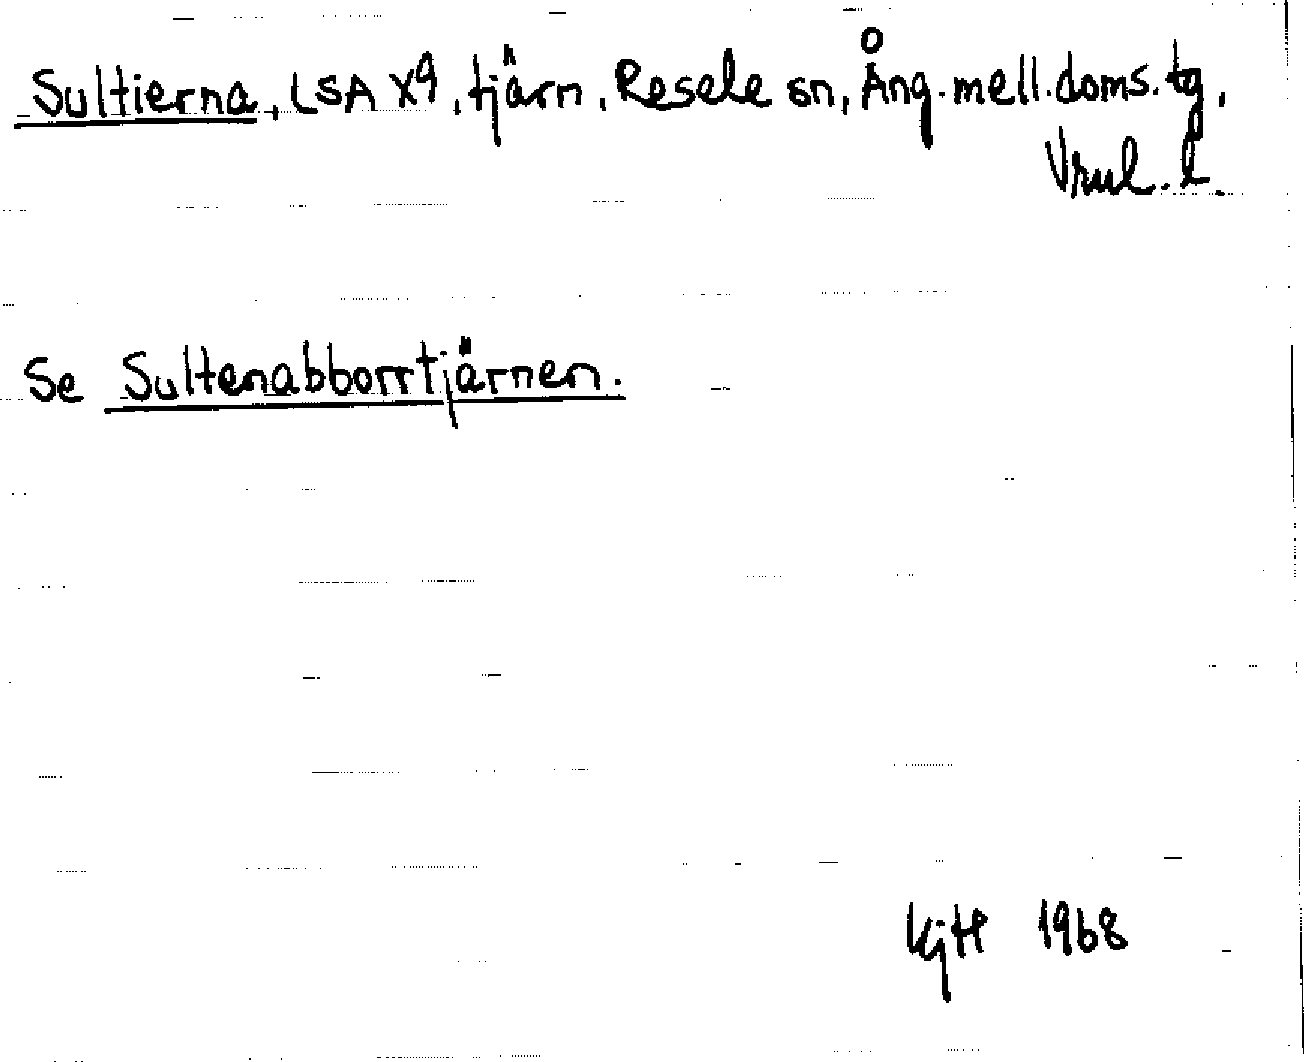 Sultierna, LSA X9, tjärn, Resele sn, Ång. mell. doms. tg,
Vnul. l.
Se Sultenabborrtjärnen.
KjH 1968